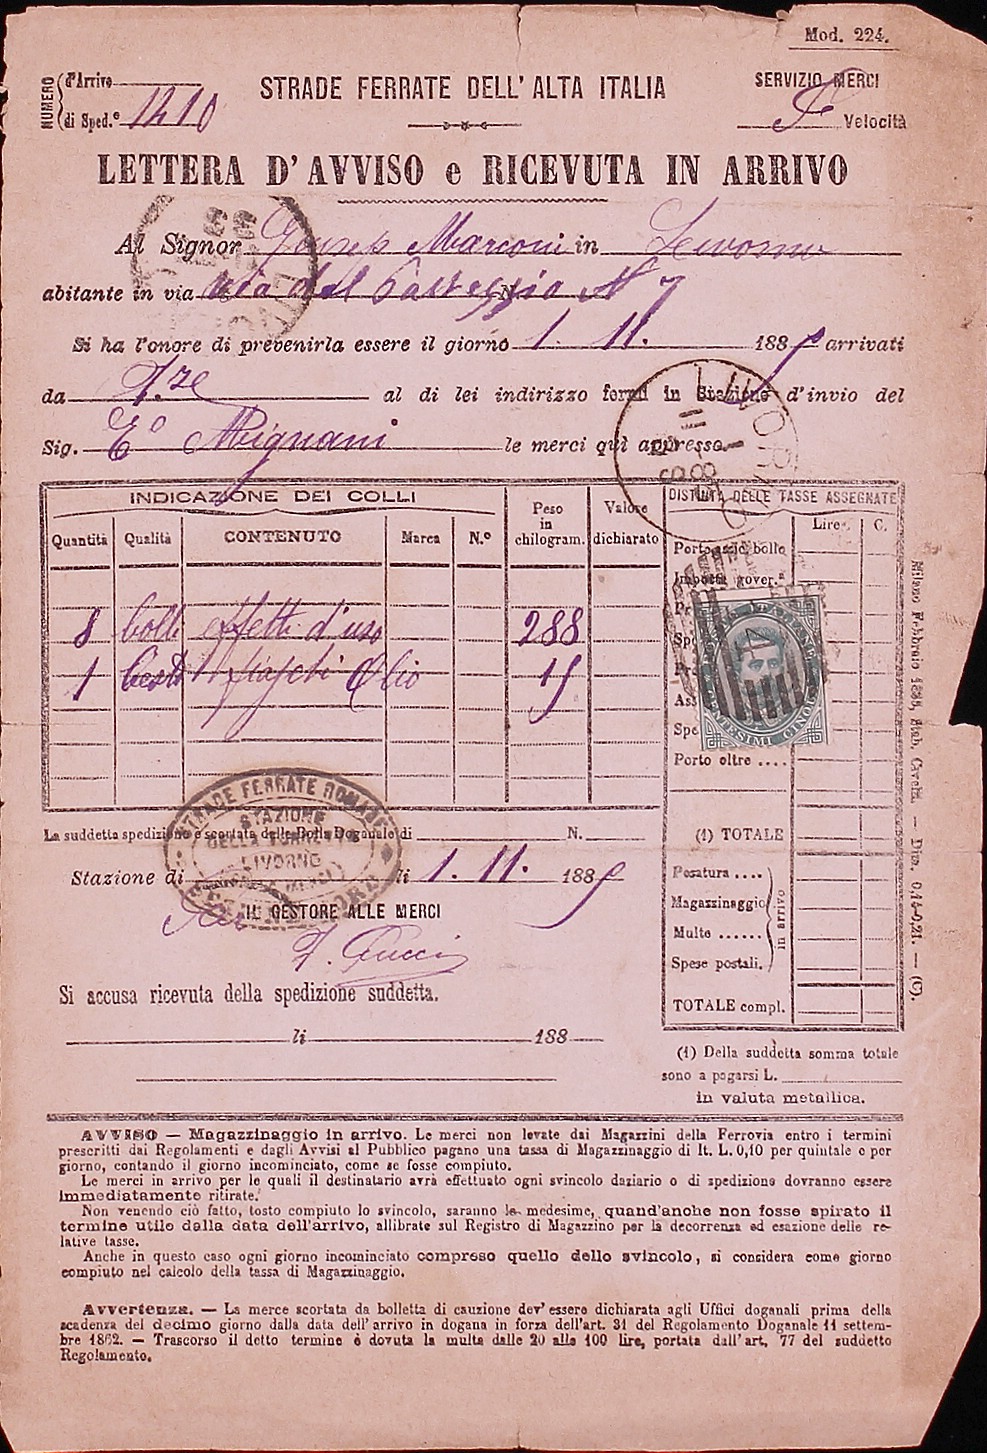 Mod. 224.
NUMERO
d'Arrivo
di Sped.e 1210
STRADE FERRATE DELL'ALTA ITALIA
SERVIZIO MERCI
Velocità
LETTERA D'AVVISO e RICEVUTA IN ARRIVO
Al Signor Giusep Marconi in Livorno
abitante in via Via del Passeggio N 7
Si ha l'onore di prevenirla essere il giorno 1. 11. 1885 arrivati
da al di lei indirizzo fermi in Stazione d'invio del
Sig. Eo Mignani le merci quì appresso.
INDICAZIONE DEI COLLI
DISTINTA DELLE TASSE ASSEGNATE
Quantità Qualità CONTENUTO Marca N.o Peso in chilogram. Valore dichiarato
Lire C.
Porto scio bollo
Imposta gover.a
8 Colli effetti d'uso 288
1 Cesto fiaschi Olio 15
CENTESIMI CINQUE
Porto oltre ....
STRADE FERRATE ROMANE
STAZIONE
LIVORNO
La suddetta spedizione è scortata dalle Bolla Doganale di N.
(1) TOTALE
Stazione di li 1. 11. 1885
IL GESTORE ALLE MERCI
Pesatura ....
Magazzinaggio
Multe ......
Spese postali.
in arrivo
TOTALE compl.
Si accusa ricevuta della spedizione suddetta.
li 188
(1) Della suddetta somma totale
sono a pagarsi L.
in valuta metallica.
Milano Febbraio 1885, Stab. Civelli. — Dim. 0,14-0,21. — (C).
AVVISO — Magazzinaggio in arrivo. Le merci non levate dai Magazzini della Ferrovia entro i termini
prescritti dai Regolamenti e dagli Avvisi al Pubblico pagano una tassa di Magazzinaggio di It. L. 0,10 per quintale e per
giorno, contando il giorno incominciato, come se fosse compiuto.
Le merci in arrivo per le quali il destinatario avrà effettuato ogni svincolo daziario o di spedizione dovranno essere
immediatamente ritirate.
Non venendo ciò fatto, tosto compiuto lo svincolo, saranno le medesime, quand'anche non fosse spirato il
termine utile dalla data dell'arrivo, allibrate sul Registro di Magazzino per la decorrenza ed esazione delle re-
lative tasse.
Anche in questo caso ogni giorno incominciato compreso quello dello svincolo, si considera come giorno
compiuto nel calcolo della tassa di Magazzinaggio.
Avvertenza. — La merce scortata da bolletta di cauzione dev'essere dichiarata agli Uffici doganali prima della
scadenza del decimo giorno dalla data dell'arrivo in dogana in forza dell'art. 31 del Regolamento Doganale 11 settem-
bre 1862. — Trascorso il detto termine è dovuta la multa dalle 20 alle 100 lire, portata dall'art, 77 del suddetto
Regolamento.